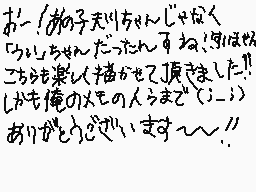 おー!あの子天川ちゃんじゃなく
「うい」ちゃんだったんすね!すいません
こちらも楽しく描かせて頂きました!!
しかも俺のメモの人らまで(;_;)
ありがとうございます〜〜!!